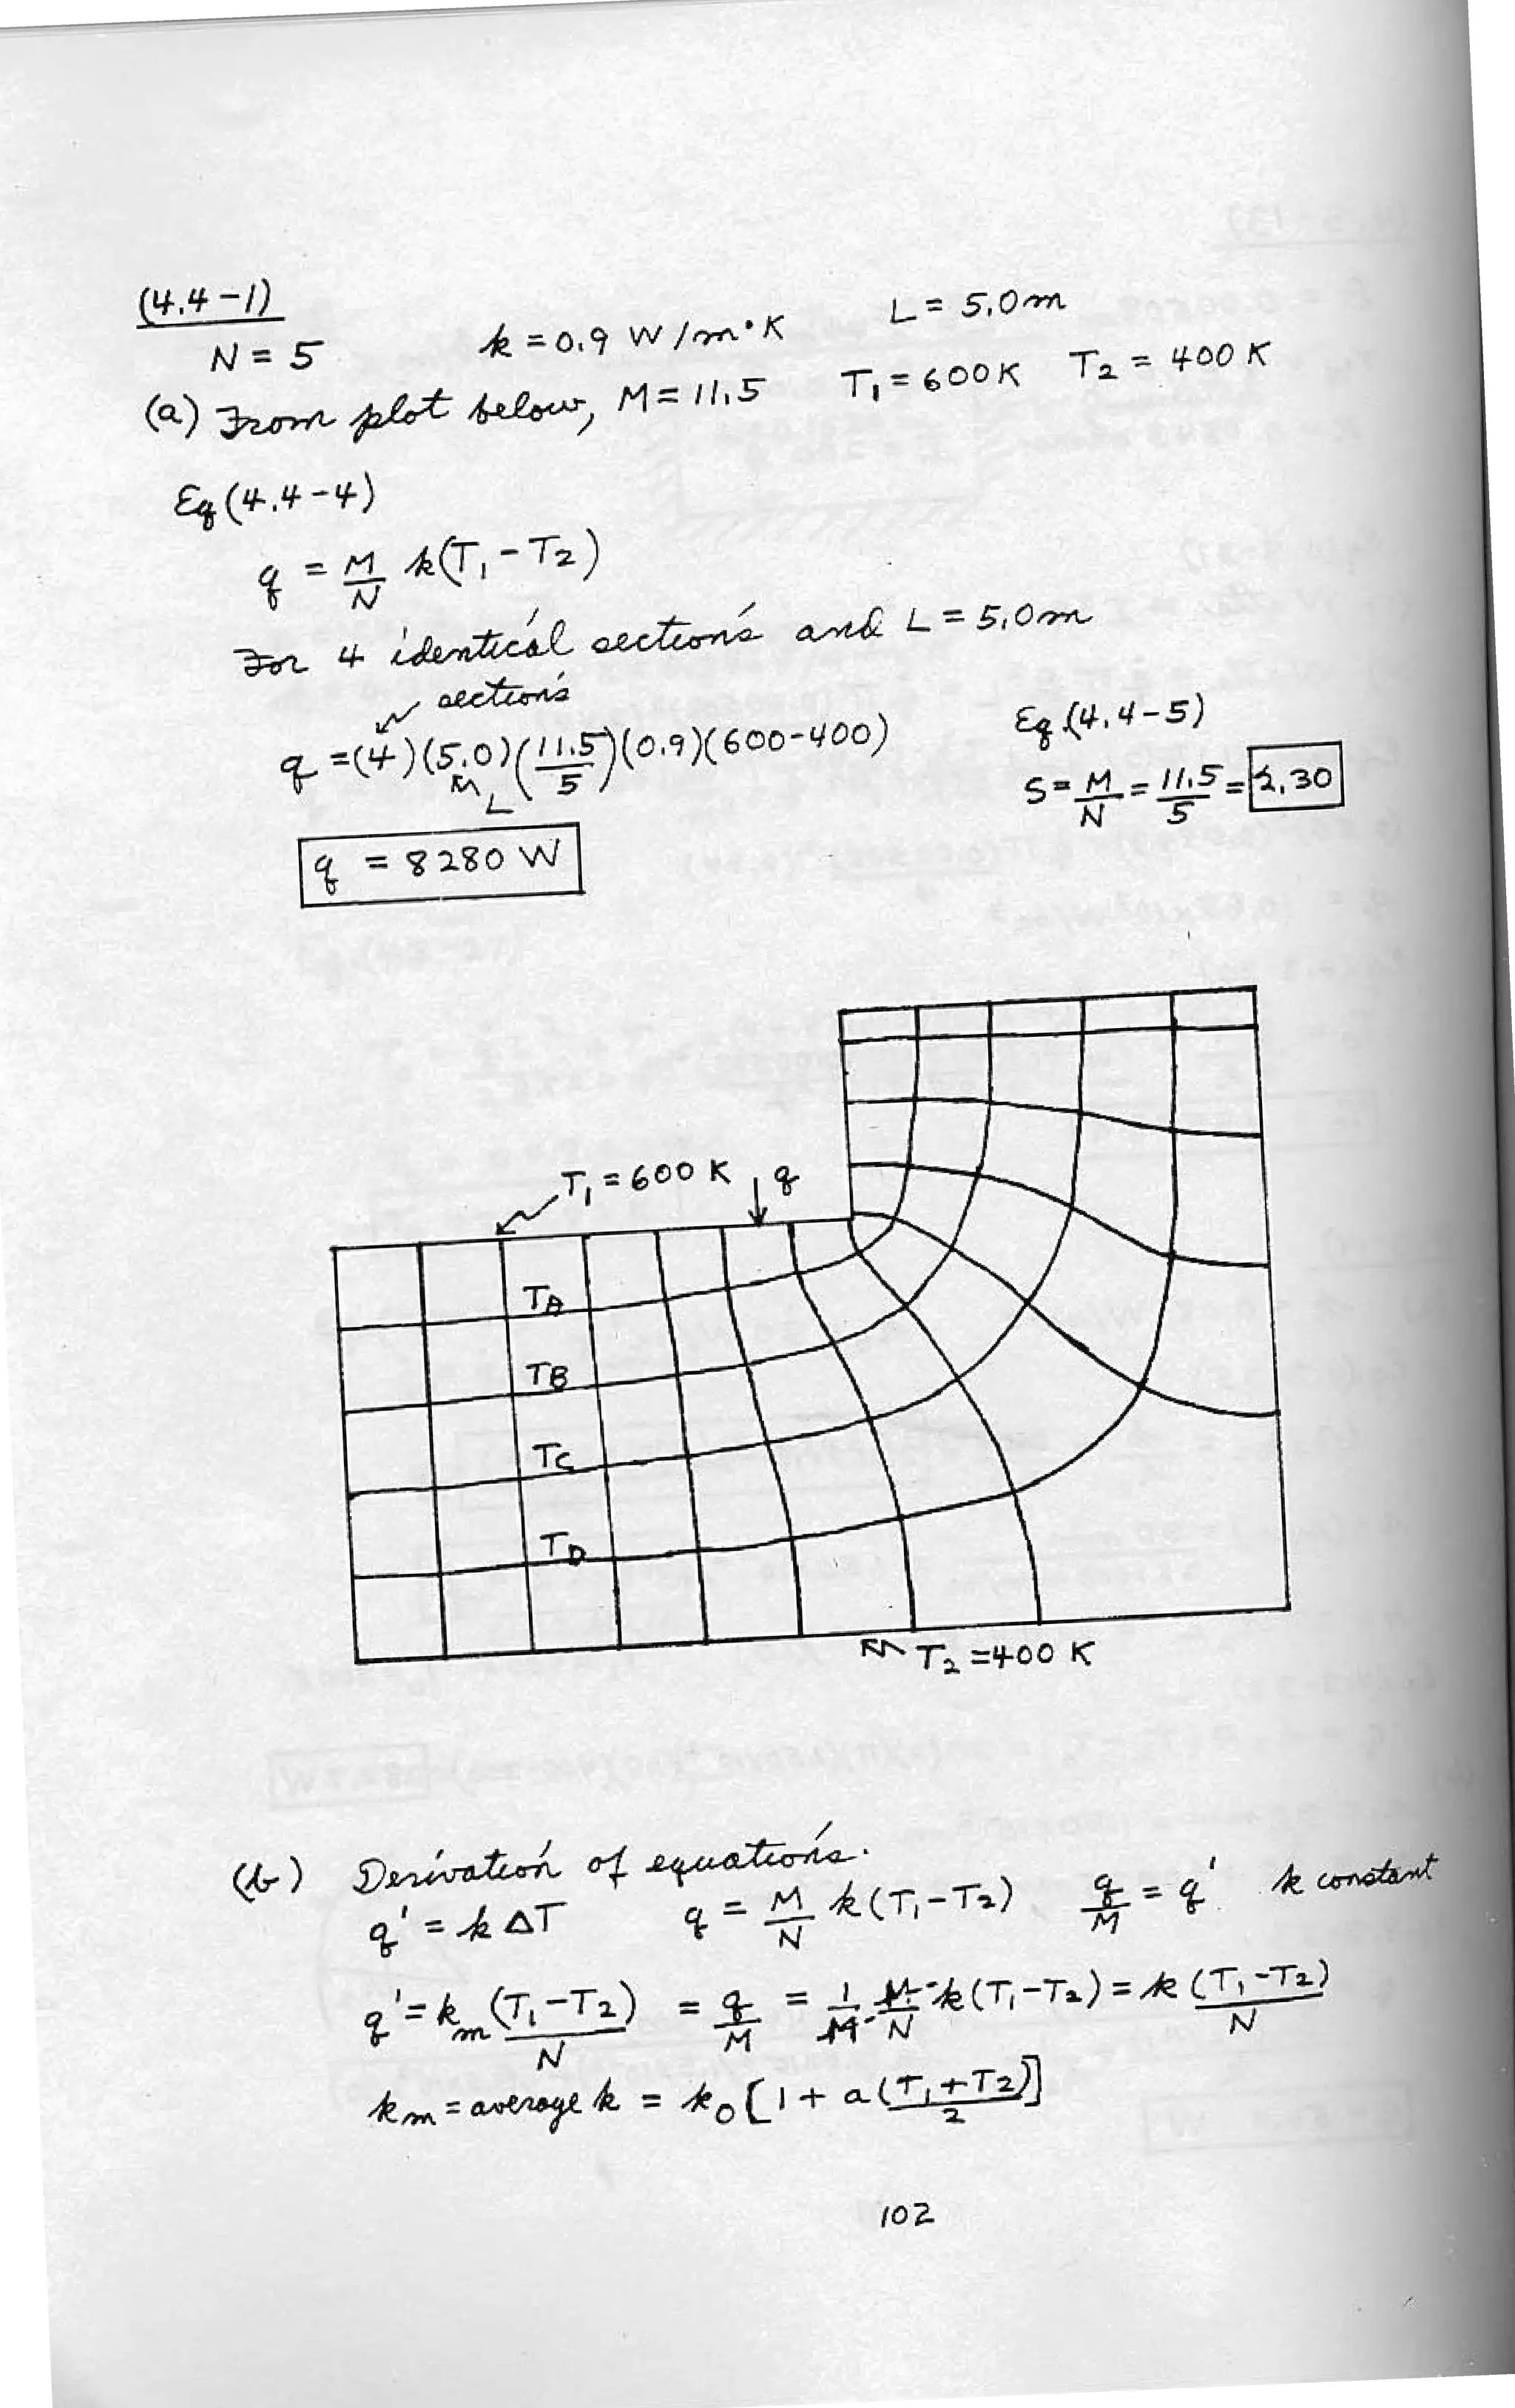 (4.4-1)
N = 5 k = 0.9 W/m·K L = 5.0 m
(a) From plot below, M = 11.5 T₁ = 600K T₂ = 400 K
Eq (4.4-4)
q = M/N k(T₁ - T₂)
For 4 identical sections and L = 5.0m
sections
q = (4)(5.0)(11.5/5)(0.9)(600-400)
L
Eq. (4.4-5)
S = M/N = 11.5/5 = 2.30
q = 8280 W
T₁ = 600 K q
TA
TB
TC
TD
T₂ = 400 K
(b) Derivation of equations.
q' = k ΔT q = M/N k(T₁ - T₂), q/M = q' k constant
q' = km (T₁ - T₂)/N = q/M = 1/M M/N k(T₁ - T₂) = k (T₁ - T₂)/N
km = average k = k₀[1 + a(T₁ + T₂)/2]
102